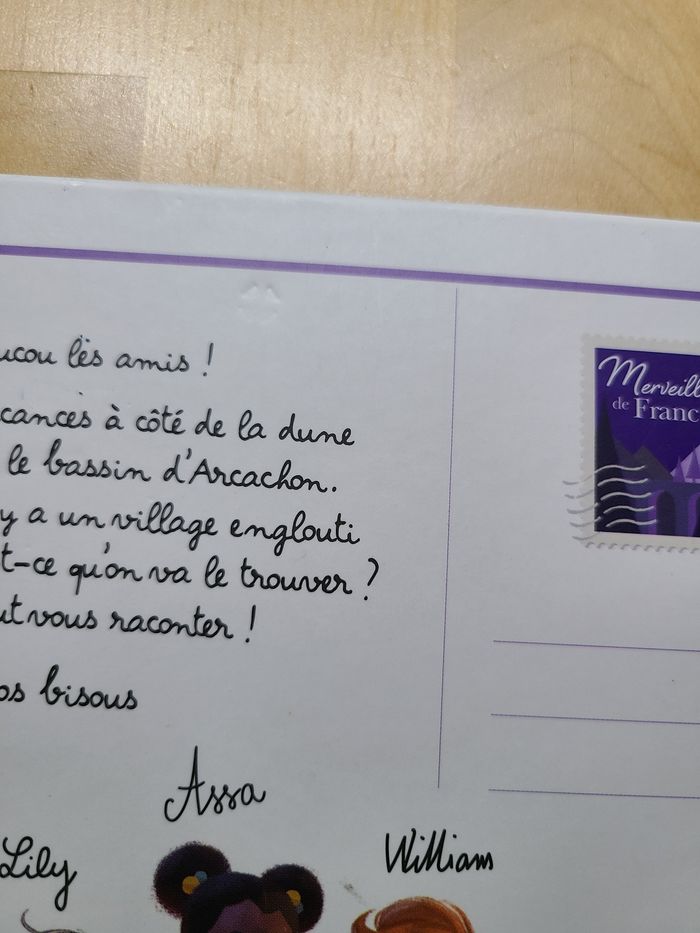 ucou les amis !
cances à côté de la dune
le bassin d'Arcachon.
y a un village englouti
t-ce qu'on va le trouver ?
ut vous raconter !
os bisous
Assa
Lily
William
Merveill
de Franc